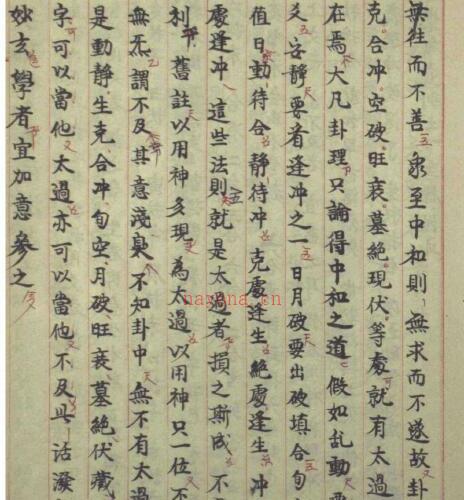 無往而不善象至中和則無求而不遂故卦
克合冲空破旺衰墓絶現伏等處就有太過
在焉大凡卦理只論得中和之道假如乱動要
爻安靜要看逢冲之一日月破要出破填合旬
值日動待合静待冲克處逢生絶處逢生冲
處逢冲這些法則就是太過者損之斯成不
利舊註以用神多現為太過以用神只一位不
無炁謂不及其意淺臬不知卦中無不有太過
是動靜生克合冲旬空月破旺衰墓絶伏藏
字可以當他太過亦可以當他不及與活潑
妙玄學者宜加意參之
nayona.cn